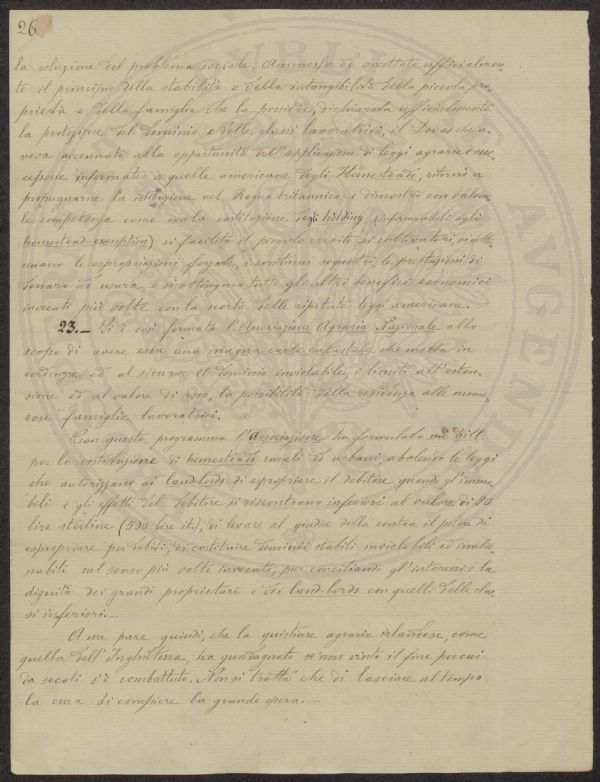 26
la soluzione del problema sociale. Ammesso ed accettato ufficialmen-
te il principio della stabilità e della intangibilità della piccola pro-
prietà e della famiglia che la possiede, dichiarata ufficialmente
la protezione del dominio e delle classi lavoratrici, il Devas che a-
veva accennato alla opportunità dell'applicazione di leggi agrarie e suc-
cessorie informate a quelle americane degli Homesteads, ritornò a
propugnarne la istituzione nel Regno britannico e dimostrò con valore
le competenza come con la costituzione degli holding informandoli agli
homestead-exemption) si facilita il piccolo credito ai coltivatori, si atte-
nuano le espropriazioni forzate, i continui sequestri, le prestazioni di
denaro ad usura, e si ottengono tutti gli altri benefici economici
invocati più volte con la scorta delle ripetute leggi americane.
23.- Si è così formata l'Associazione Agraria Nazionale allo
scopo di avere essa una magna carta catastale che metta in
evidenza ed al sicuro il dominio inviolabile, i limiti all'esten-
sione ed al valore di esso, la possibilità della residenza alle nume-
rose famiglie lavoratrici.
Con questo programma l'Associazione ha formulato un bill
per la costituzione di homesteads rurali ed urbani, abolendo le leggi
che autorizzano ai land-lords di espropriare il debitore quando gl'immo-
bili e gli effetti del debitore si riscontrano inferiori al valore di 20
lire sterline (500 lire it.), di levare al giudice della contea il potere di
espropriare per debiti, di costituire dominii stabili inviolabili ed inalie-
nabili nel senso più volte invocato, pur conciliando gl'interessi e la
dignità dei grandi proprietari e dei land-lords con quelli delle clas-
si inferiori.-
A me pare quindi, che la quistione agraria irlandese, come
quella dell'Inghilterra, ha guadagnato se non vinto il fine per cui
da secoli s'è combattuto. Non si tratta che di lasciare al tempo
la cura di compiere la grande opera.-